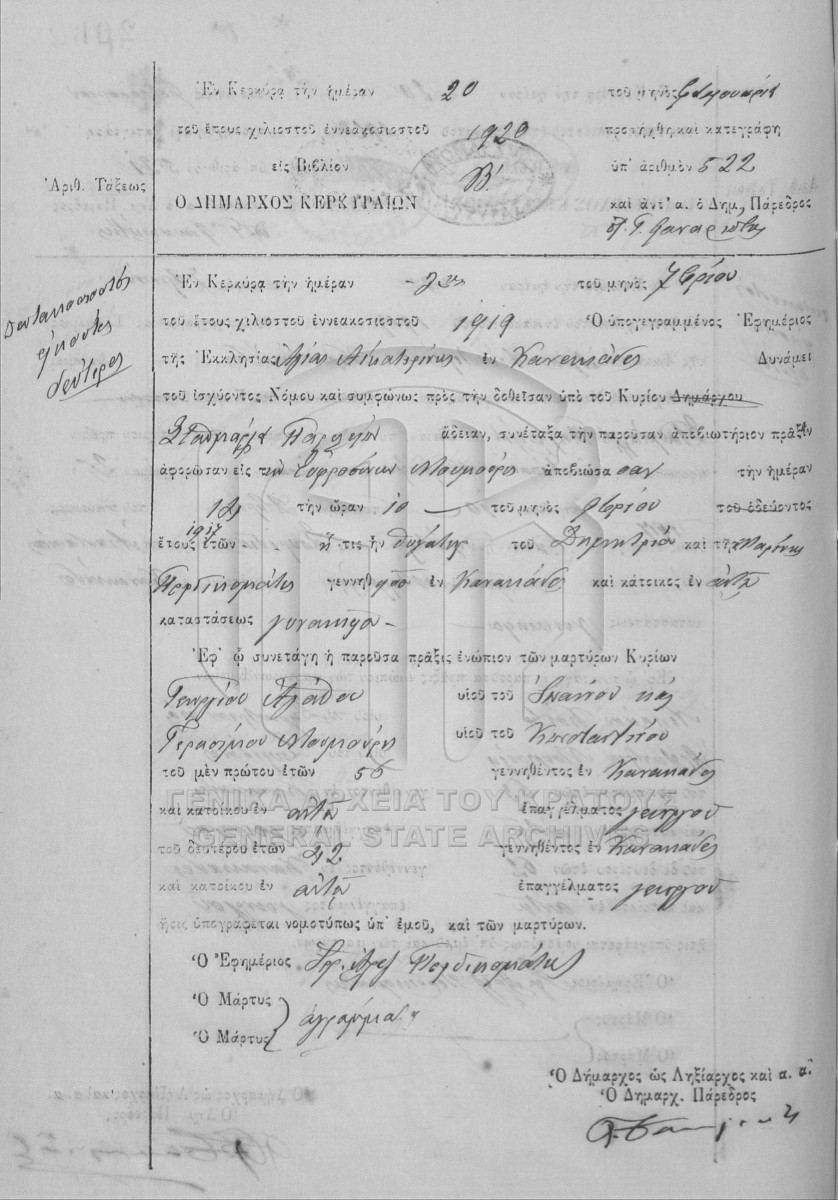 Ἐν Κερκύρᾳ τὴν ἡμέραν 20 τοῦ μηνὸς
τοῦ ἔτους χιλιοστοῦ ἐννεακοσιοστοῦ 1920 προσήχθη καὶ κατεγράφη
εἰς Βιβλίον Β' ὑπ' ἀριθμὸν 522
Ἀριθ. Τάξεως
Ὁ ΔΗΜΑΡΧΟΣ ΚΕΡΚΥΡΑΙΩΝ καὶ ἀντ' α. ὁ Δημ. Πάρεδρος
πεντακοσιοστός
εἰκοστός
δεύτερος
Ἐν Κερκύρᾳ τὴν ἡμέραν τοῦ μηνὸς 7βρίου
τοῦ ἔτους χιλιοστοῦ ἐννεακοσιοστοῦ 1919 Ὁ ὑπογεγραμμένος Ἐφημέριος
τῆς Ἐκκλησίας Ἁγίας Αἰκατερίνης ἐν Κανακάδες Δυνάμει
τοῦ ἰσχύοντος Νόμου καὶ συμφώνως πρὸς τὴν δοθεῖσαν ὑπὸ τοῦ Κυρίου Δημάρχου
ἄδειαν, συνέταξα τὴν παροῦσαν ἀποβιωτήριον πρᾶξιν
ἀφορῶσαν εἰς τὴν Εὐφροσύνην ἀποβιώσασαν τὴν ἡμέραν
τὴν ὥραν 10 τοῦ μηνὸς τοῦ ὁδεύοντος
1917
ἔτους ἐτῶν ἥτις ἦν θυγάτηρ τοῦ Δημητρίου καὶ τῆς Μαρίνης
Περδικομάτης γεννηθ ἐν Κανακάδες καὶ κάτοικος ἐν αὐτῷ
καταστάσεως γυναῖκα
Ἐφ' ᾧ συνετάγη ἡ παροῦσα πρᾶξις ἐνώπιον τῶν μαρτύρων Κυρίων
Γεωργίου Ἀγάθου υἱοῦ τοῦ Ἰωάννου καὶ
Γερασίμου υἱοῦ τοῦ Κωνσταντίνου
τοῦ μὲν πρώτου ἐτῶν 56 γεννηθέντος ἐν Κανακάδες
ΓΕΝΙΚΑ ΑΡΧΕΙΑ ΤΟΥ ΚΡΑΤΟΥΣ
καὶ κατοίκου ἐν αὐτῷ ἐπαγγέλματος γεωργοῦ
GENERAL STATE ARCHIVES
τοῦ δευτέρου ἐτῶν 42 γεννηθέντος ἐν Κανακάδες
καὶ κατοίκου ἐν αὐτῷ ἐπαγγέλματος γεωργοῦ
ἥτις ὑπογράφεται νομοτύπως ὑπ' ἐμοῦ, καὶ τῶν μαρτύρων.
Ὁ Ἐφημέριος Περδικομάτης
Ὁ Μάρτυς
ἀγράμματοι
Ὁ Μάρτυς
Ὁ Δήμαρχος ὡς Ληξίαρχος καὶ α. α.
Ὁ Δημαρχ. Πάρεδρος